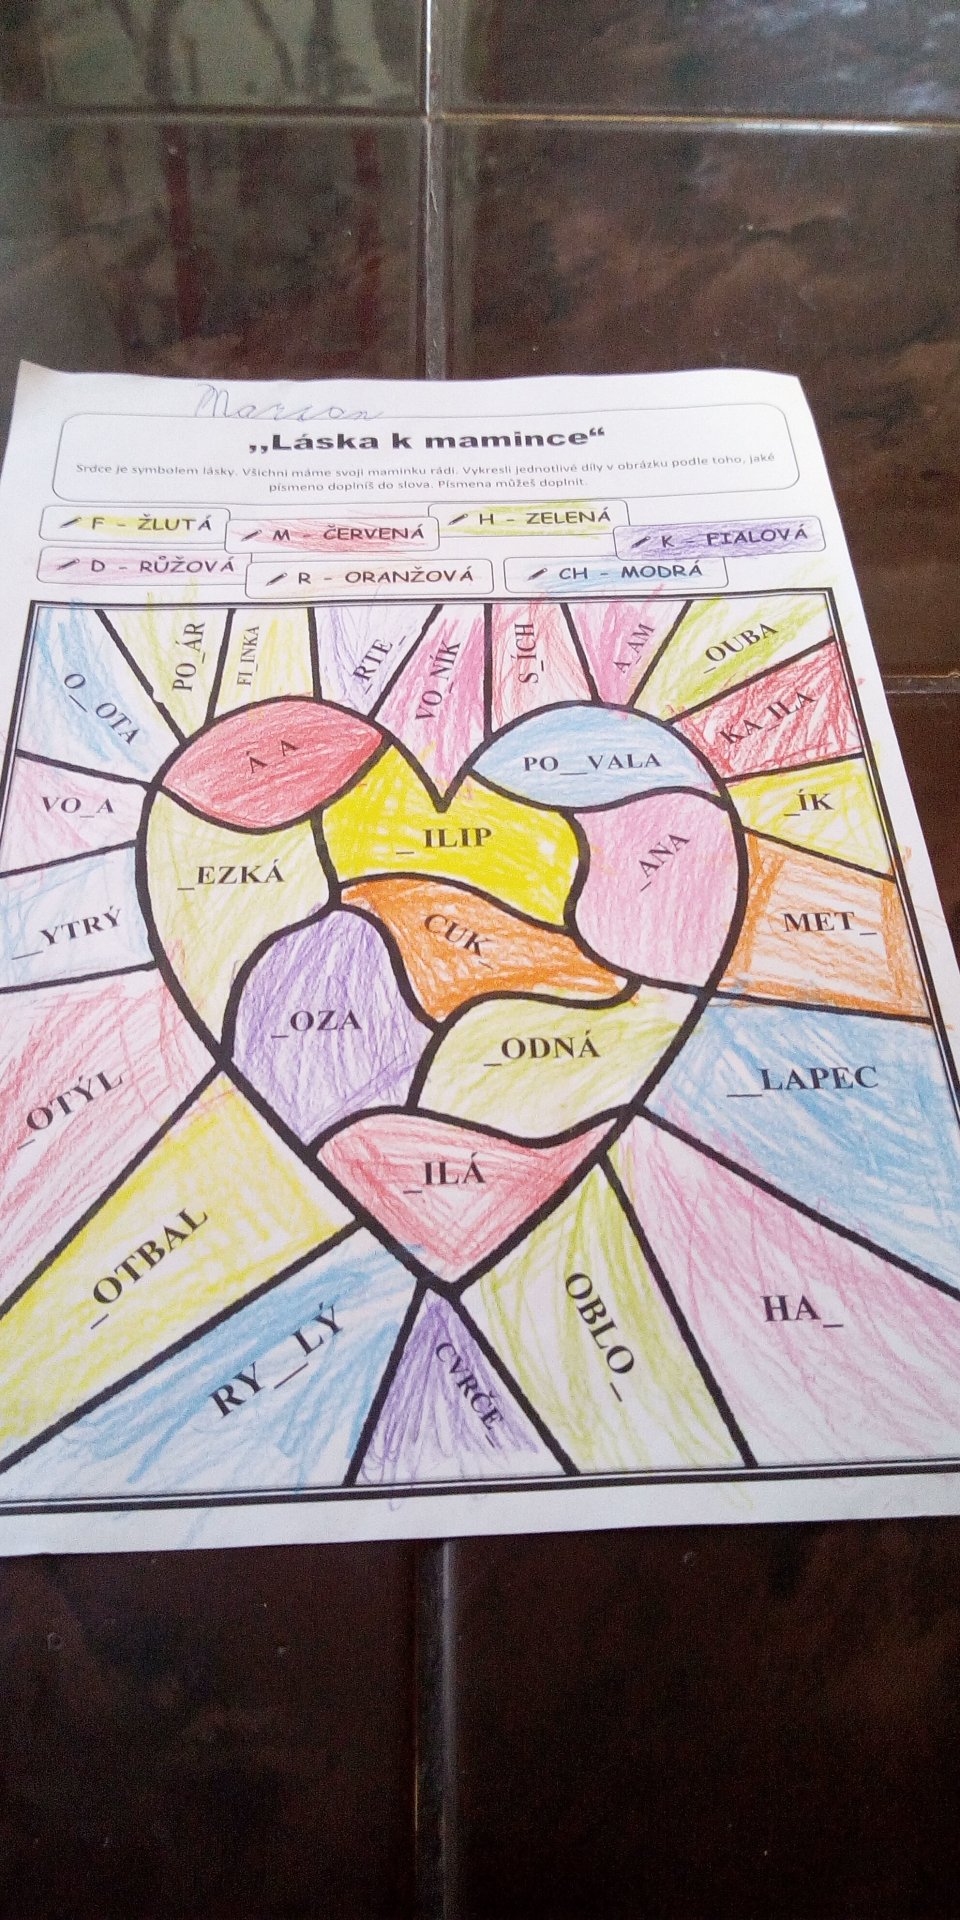 Marcon
„Láska k mamince“
Srdce je symbolem lásky. Všichni máme svoji maminku rádi. Vykresli jednotlivé díly v obrázku podle toho, jaké
písmeno doplníš do slova. Písmena můžeš doplnit.
F - ŽLUTÁ
M - ČERVENÁ
H - ZELENÁ
K - FIALOVÁ
D - RŮŽOVÁ
R - ORANŽOVÁ
CH - MODRÁ
O__OTA
PO_ÁR
FI_INKA
_RTE_
VO_NÍK
S_ÍCH
A_AM
_OUBA
KA_ILA
Á_A
PO__VALA
VO_A
_ILIP
_ÍK
_EZKÁ
_ANA
__YTRÝ
CUK_
MET_
_OZA
_ODNÁ
_OTÝL
__LAPEC
_ILÁ
_OTBAL
RY__LÝ
CVRČE_
OBLO_
HA_